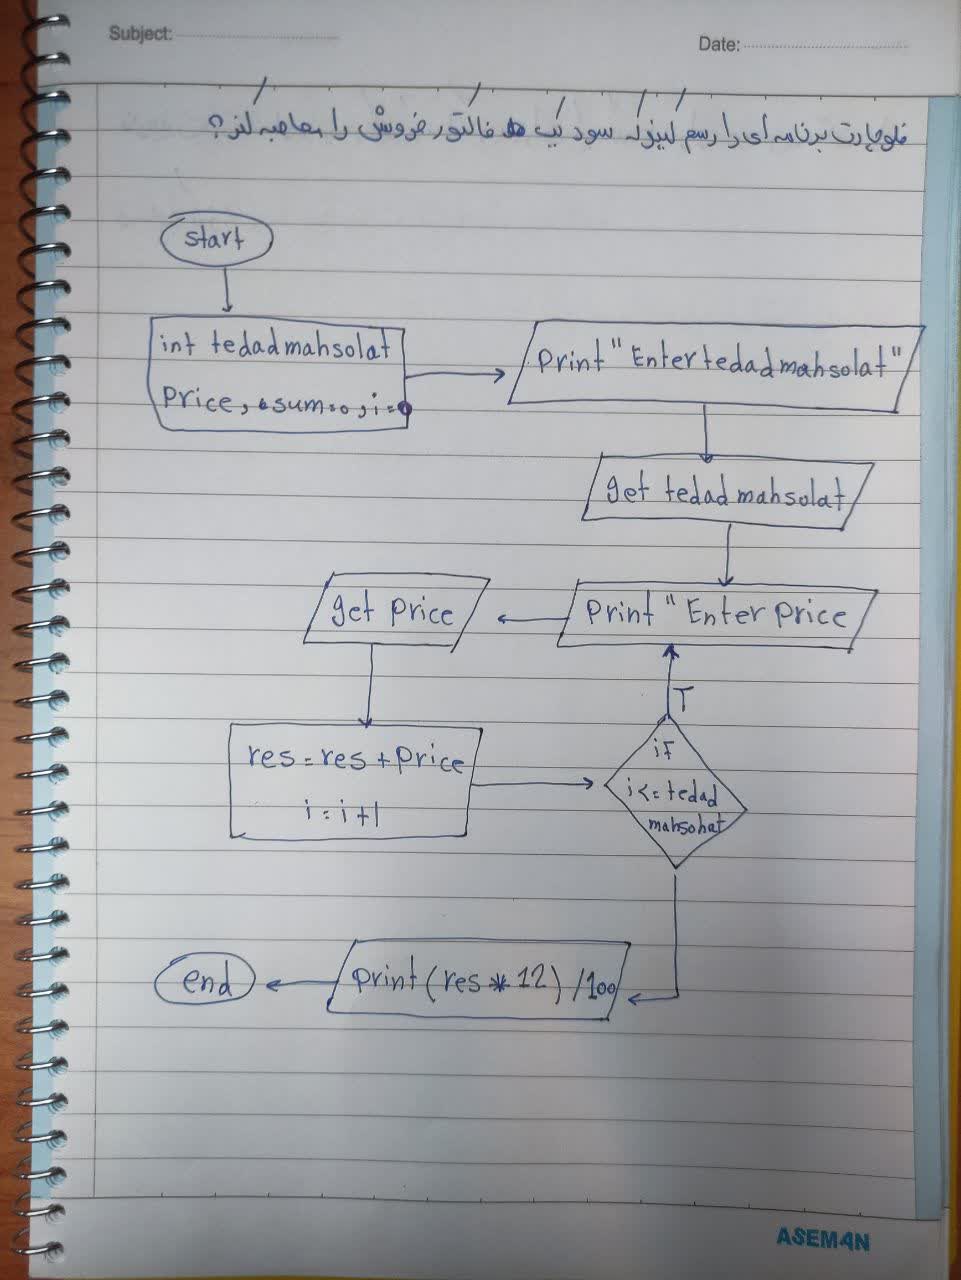 Subject:
Date:
فلوچارت برنامه ای را رسم کنید که سود یک فاکتور فروش را محاصبه کند؟
start
int tedadmahsolat
Price, sum=0, i=0
Print "Enter tedad mahsolat"
get tedad mahsolat
Print "Enter Price
get Price
res = res + Price
i = i +1
T
if
i<= tedad
mahsohat
Print (res * 12) /100
end
ASEMAN